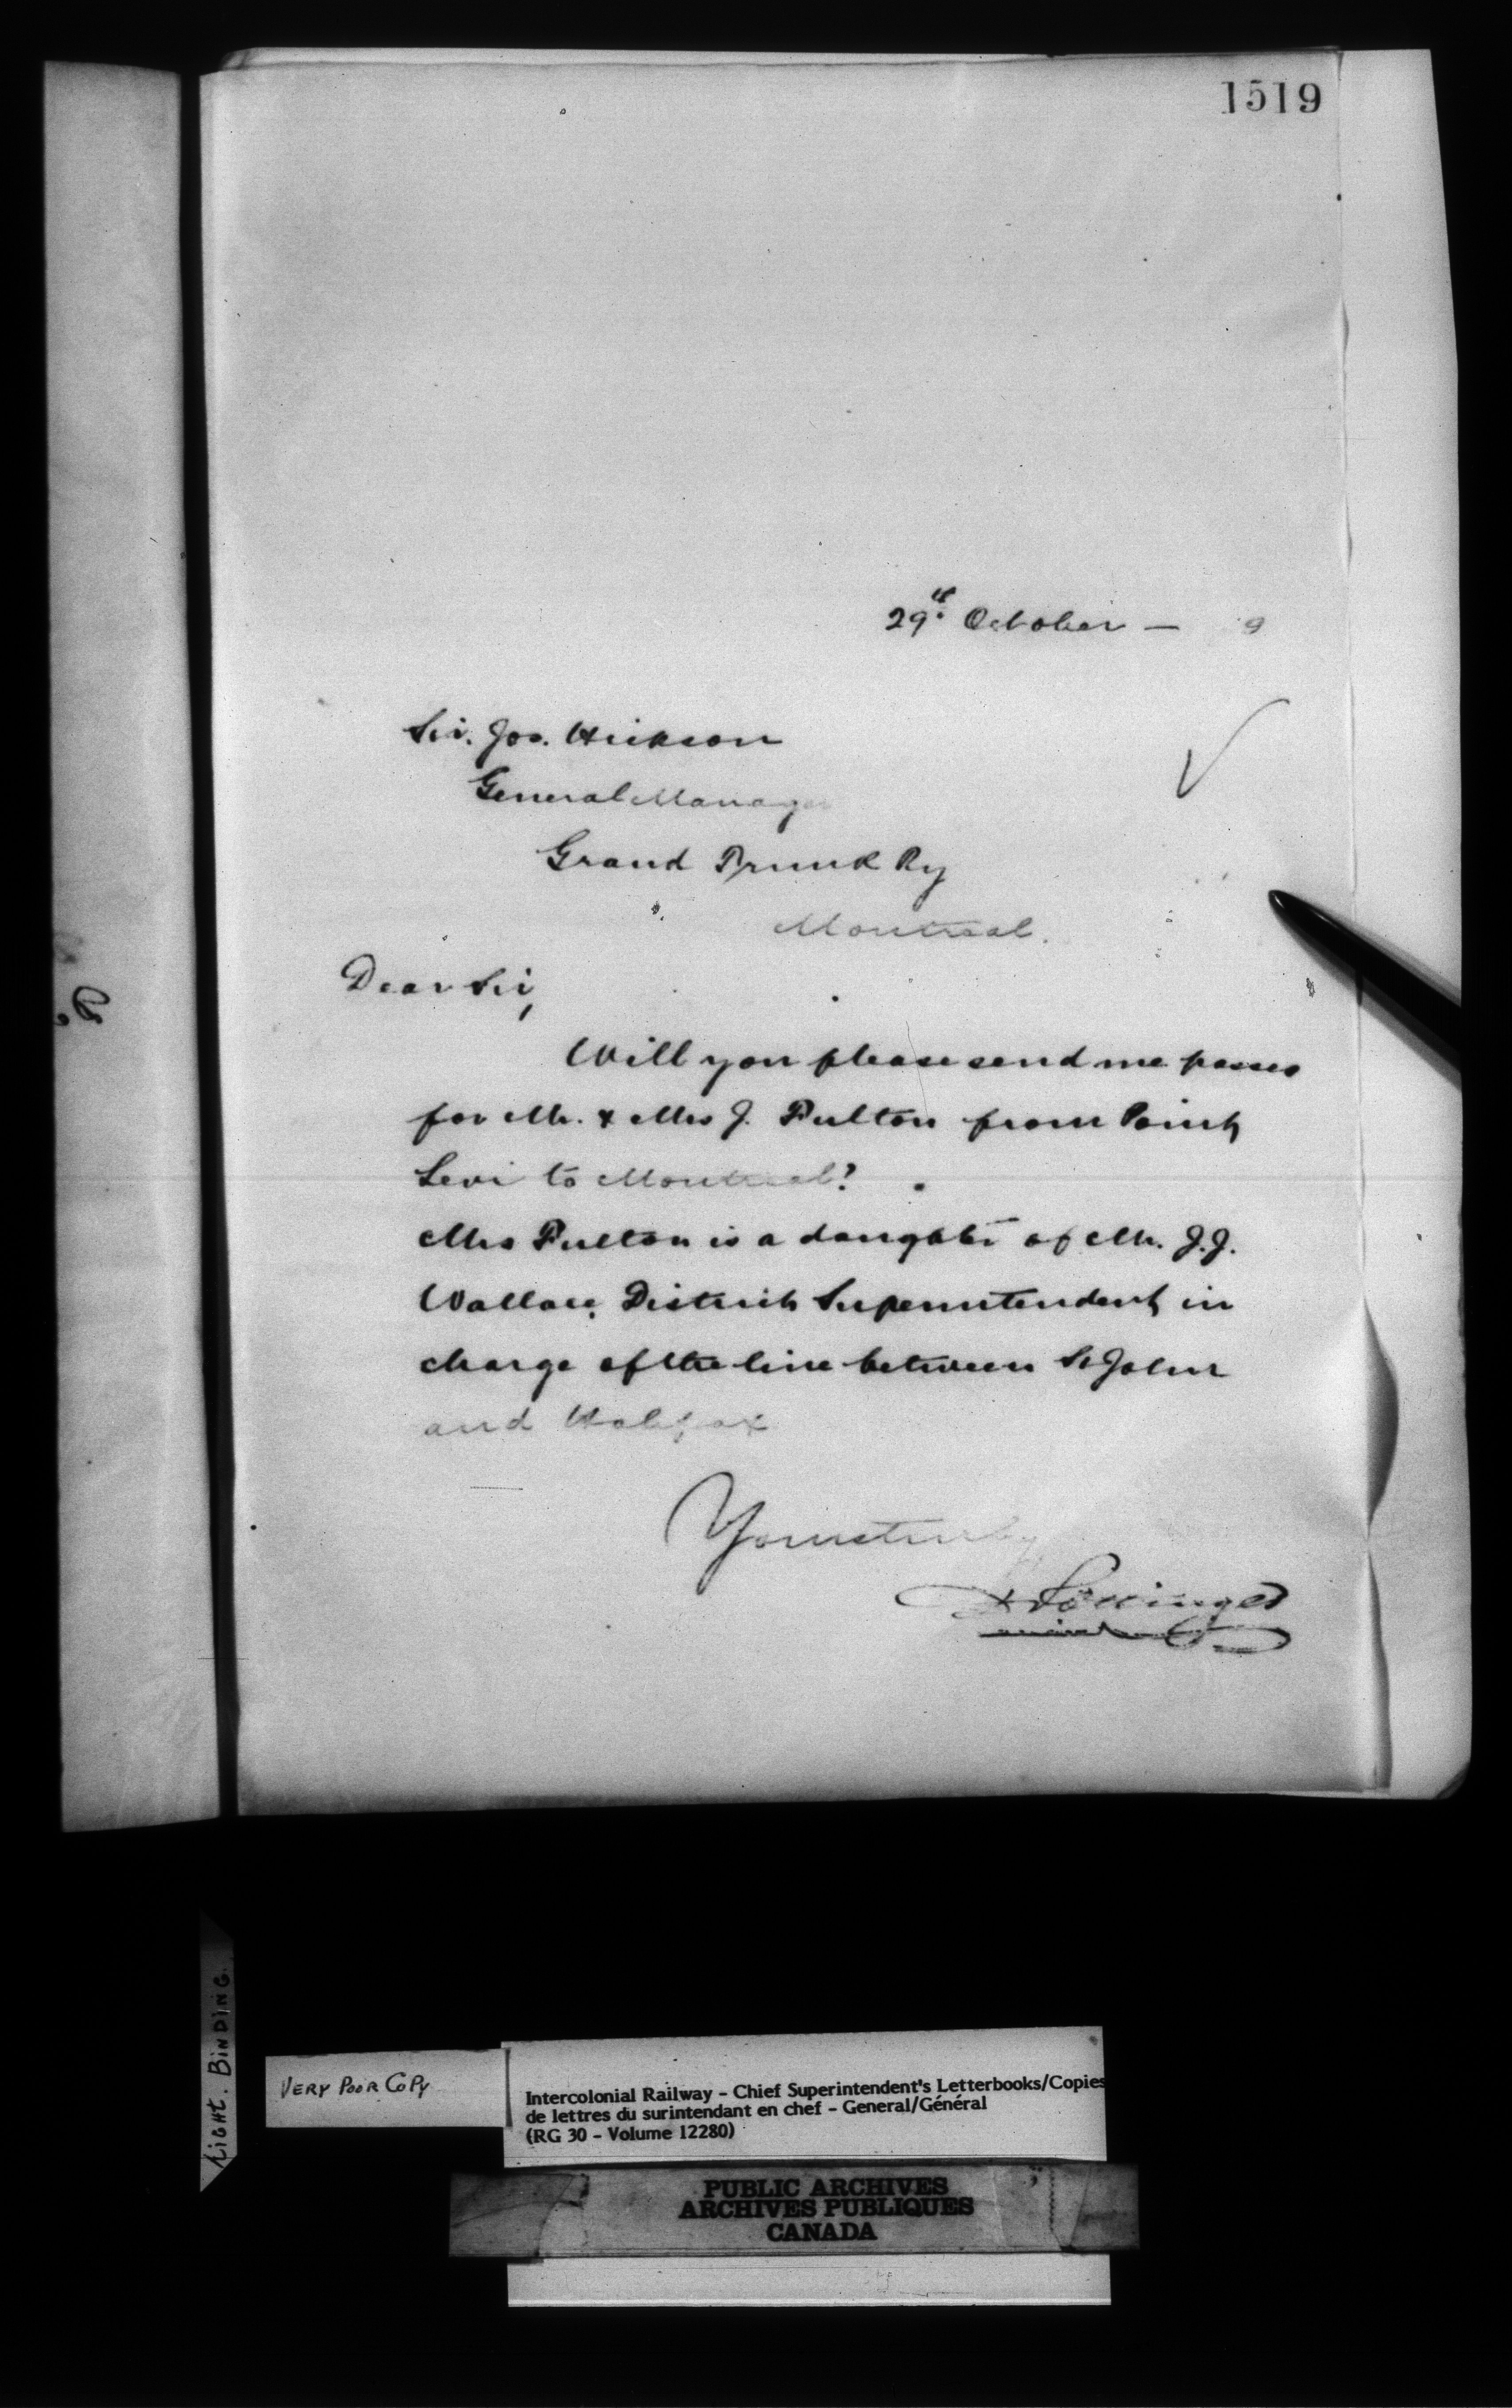 1519
29th October — 9
Sir. Jos. Hickson
General Manager
Grand Trunk Ry
Montreal.
Dear Sir,
Will you please send me passes
for Mr. & Mrs J. Fulton from Point
Levi to Montreal?
Mrs Fulton is a daughter of Mr. J.J.
Wallace, District Superintendent in
charge of the line between St John
and Halifax
Yours truly
D Pottinger
TIGHT. BINDING.
VERY POOR COPY
Intercolonial Railway – Chief Superintendent's Letterbooks/Copies
de lettres du surintendant en chef – General/Général
(RG 30 – Volume 12280)
PUBLIC ARCHIVES
ARCHIVES PUBLIQUES
CANADA